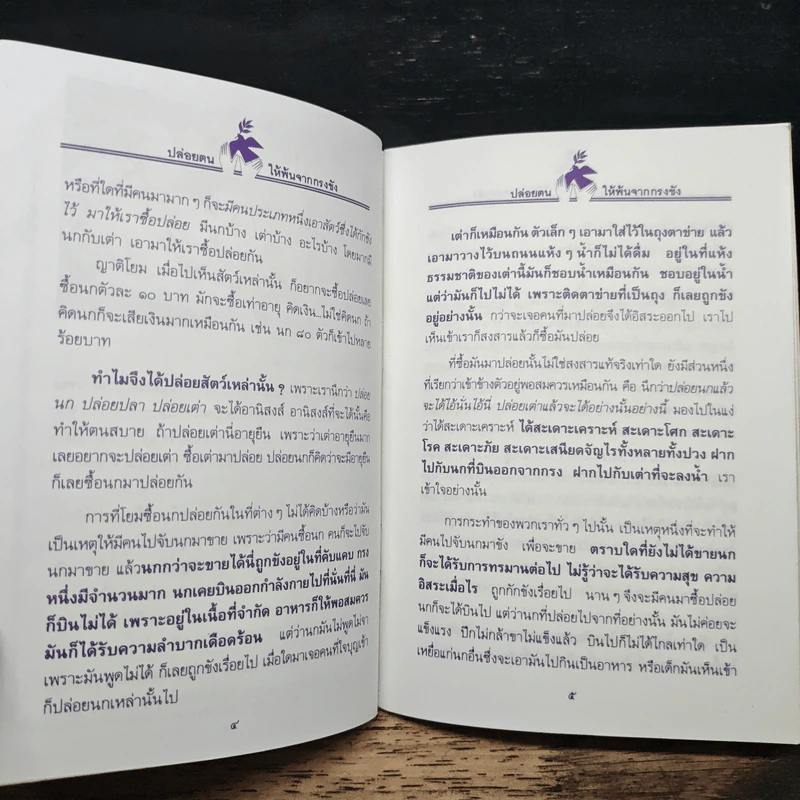 ปล่อยตน ให้พ้นจากกรงขัง
หรือที่ใดที่มีคนมามาก ๆ ก็จะมีคนประเภทหนึ่งเอาสัตว์ซึ่งได้กักขัง
ไว้ มาให้เราซื้อปล่อย มีนกบ้าง เต่าบ้าง อะไรบ้าง โดยมากมี
นกกับเต่า เอามาให้เราซื้อปล่อยกัน
ญาติโยม เมื่อไปเห็นสัตว์เหล่านั้น ก็อยากจะซื้อปล่อยเลย
ซื้อนกตัวละ ๑๐ บาท มักจะซื้อเท่าอายุ คิดเงิน...ไม่ใช่คิดนก ถ้า
คิดนกก็จะเสียเงินมากเหมือนกัน เช่น นก ๘๐ ตัวก็เข้าไปหลาย
ร้อยบาท
ทำไมจึงได้ปล่อยสัตว์เหล่านั้น ? เพราะเรานึกว่า ปล่อย
นก ปล่อยปลา ปล่อยเต่า จะได้อานิสงส์ อานิสงส์ที่จะได้นั้นคือ
ทำให้ตนสบาย ถ้าปล่อยเต่านี่อายุยืน เพราะว่าเต่าอายุยืนมาก
เลยอยากจะปล่อยเต่า ซื้อเต่ามาปล่อย ปล่อยนกก็คิดว่าจะมีอายุยืน
ก็เลยซื้อนกมาปล่อยกัน
การที่โยมซื้อนกปล่อยกันในที่ต่าง ๆ ไม่ได้คิดบ้างหรือว่ามัน
เป็นเหตุให้มีคนไปจับนกมาขาย เพราะว่ามีคนซื้อนก คนก็จะไปจับ
นกมาขาย แล้วนกกว่าจะขายได้นี่ถูกขังอยู่ในที่คับแคบ กรง
หนึ่งมีจำนวนมาก นกเคยบินออกกำลังกายไปที่นั่นที่นี่ มัน
ก็บินไม่ได้ เพราะอยู่ในเนื้อที่จำกัด อาหารก็ให้พอสมควร
มันก็ได้รับความลำบากเดือดร้อน แต่ว่านกมันไม่พูดไม่จา
เพราะมันพูดไม่ได้ ก็เลยถูกขังเรื่อยไป เมื่อใดมาเจอคนที่ใจบุญเข้า
ก็ปล่อยนกเหล่านั้นไป
๔
ปล่อยตน ให้พ้นจากกรงขัง
เต่าก็เหมือนกัน ตัวเล็ก ๆ เอามาใส่ไว้ในถุงตาข่าย แล้ว
เอามาวางไว้บนถนนแห้ง ๆ น้ำก็ไม่ได้ดื่ม อยู่ในที่แห้ง
ธรรมชาติของเต่านี้มันก็ชอบน้ำเหมือนกัน ชอบอยู่ในน้ำ
แต่ว่ามันก็ไปไม่ได้ เพราะติดตาข่ายที่เป็นถุง ก็เลยถูกขัง
อยู่อย่างนั้น กว่าจะเจอคนที่มาปล่อยจึงได้อิสระออกไป เราไป
เห็นเข้าเราก็สงสารแล้วก็ซื้อมันปล่อย
ที่ซื้อมันมาปล่อยนั้นไม่ใช่สงสารแท้จริงเท่าใด ยังมีส่วนหนึ่ง
ที่เรียกว่าเข้าข้างตัวอยู่พอสมควรเหมือนกัน คือ นึกว่าปล่อยนกแล้ว
จะได้ไอ้นั่นไอ้นี่ ปล่อยเต่าแล้วจะได้อย่างนั้นอย่างนี้ มองไปในแง่
ว่าได้สะเดาะเคราะห์ ได้สะเดาะเคราะห์ สะเดาะโศก สะเดาะ
โรค สะเดาะภัย สะเดาะเสนียดจัญไรทั้งหลายทั้งปวง ฝาก
ไปกับนกที่บินออกจากกรง ฝากไปกับเต่าที่จะลงน้ำ เรา
เข้าใจอย่างนั้น
การกระทำของพวกเราทั่ว ๆ ไปนั้น เป็นเหตุหนึ่งที่จะทำให้
มีคนไปจับนกมาขัง เพื่อจะขาย ตราบใดที่ยังไม่ได้ขายนก
ก็จะได้รับการทรมานต่อไป ไม่รู้ว่าจะได้รับความสุข ความ
อิสระเมื่อไร ถูกกักขังเรื่อยไป นาน ๆ จึงจะมีคนมาซื้อปล่อย
นกก็จะได้บินไป แต่ว่านกที่ปล่อยไปจากที่อย่างนั้น มันไม่ค่อยจะ
แข็งแรง ปีกไม่กล้าขาไม่แข็งแล้ว บินไปก็ไม่ได้ไกลเท่าใด เป็น
เหยื่อแก่นกอื่นซึ่งจะเอามันไปกินเป็นอาหาร หรือเด็กมันเห็นเข้า
๕